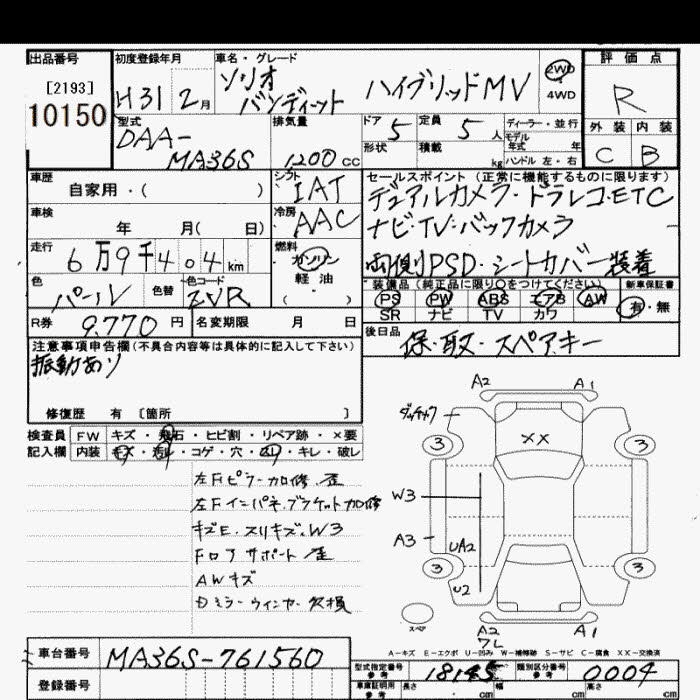 出品番号 初度登録年月 車名・グレード 評価点
[2193] ソリオ ハイブリッドMV 2WD R
10150 H31 2月 バンディット 4WD
型式 排気量 ドア 5 定員 5人 ディーラー・並行 外装 内装
DAA- モデル年式 年式
MA36S 1200 CC 形状 積載 kg ハンドル 左・右 C B
車歴 シフト セールスポイント(正常に機能するものに限ります)
自家用・( ) IAT デュアルカメラ・ドラレコ・ETC
車検 年 月( 日) 冷房 AAC ナビ・TV・バックカメラ
走行 6万9千404km 燃料 ガソリン 両側PSD・シートカバー装着
軽油
( )
色 パール 色替 色コード ZVR 装備品(純正品に限り○をつけてください) 新車保証書
PS PW ABS エアB AW 有・無
SR ナビ TV カワ
R券 9.770円 名変期限 月 日 後日品
保・取・スペアキー
注意事項申告欄(不具合内容等は具体的に記入して下さい)
振動あり
修復歴 有 [箇所 ]
検査員 FW キズ・飛石・ヒビ割・リペア跡・×要
記入欄 内装 キズ・汚れ・コゲ・穴・スレ・キレ・破レ
左Fピラー加修.歪
左Fインパネ.ブラケット加修
キズE.スリキズ.W3
Fロアサポート 歪
AWキズ
ミラーウィンカー欠損
A2 A1
3 XX 3
W3
A3 UA2
3 U2 3
スペア
A2 A1
A-キズ E-エクボ U-凹み W-補修跡 S-サビ C-腐食 XX-交換済
車台番号 MA36S-761560
登録番号
型式指定番号 参考 18145 類別区分番号 参考 0004
車庫証明用 参考 長さ cm 幅 cm 高さ cm